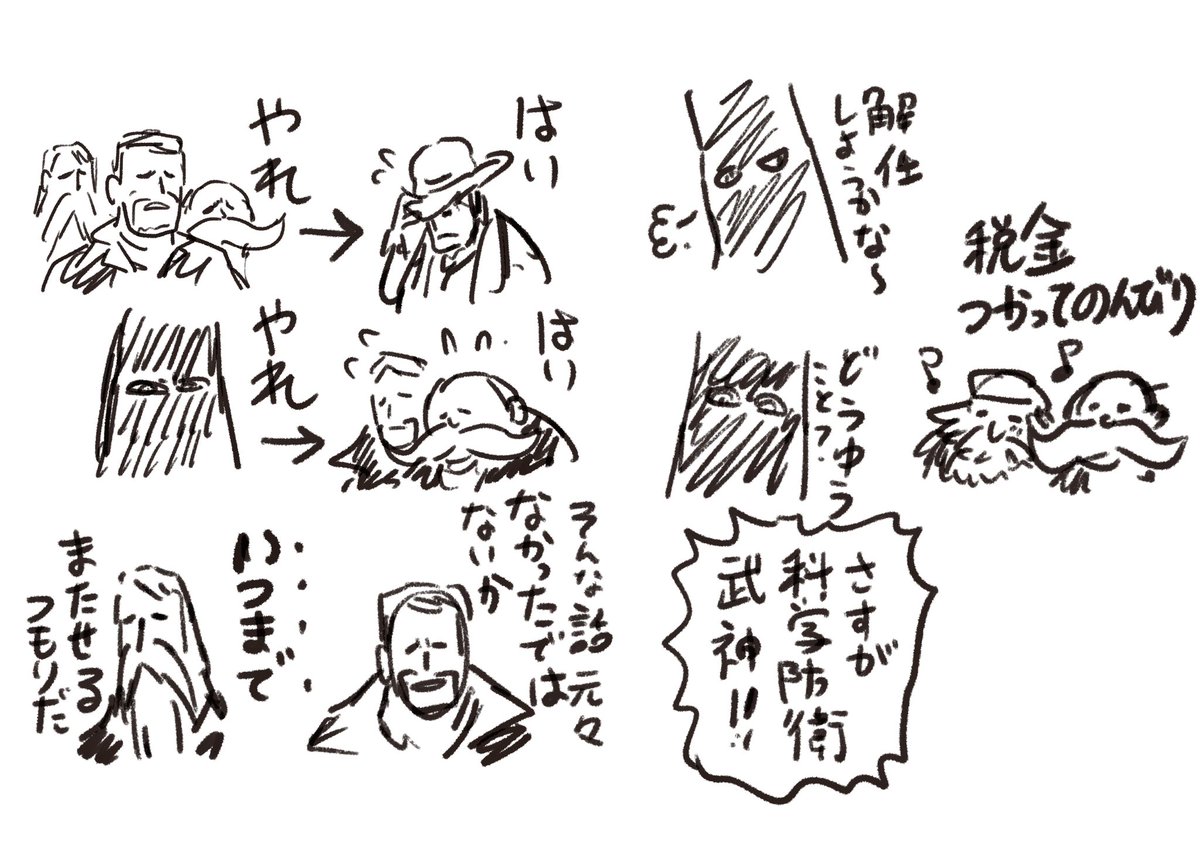 やれ
はい
やれ
はい
いつまで
またせる
つもりだ
そんな話元々
なかったでは
ないか
解任
しようかな〜
税金
つかってのんびり
どうゆう
こと?
さすが
科学防衛
武神!!